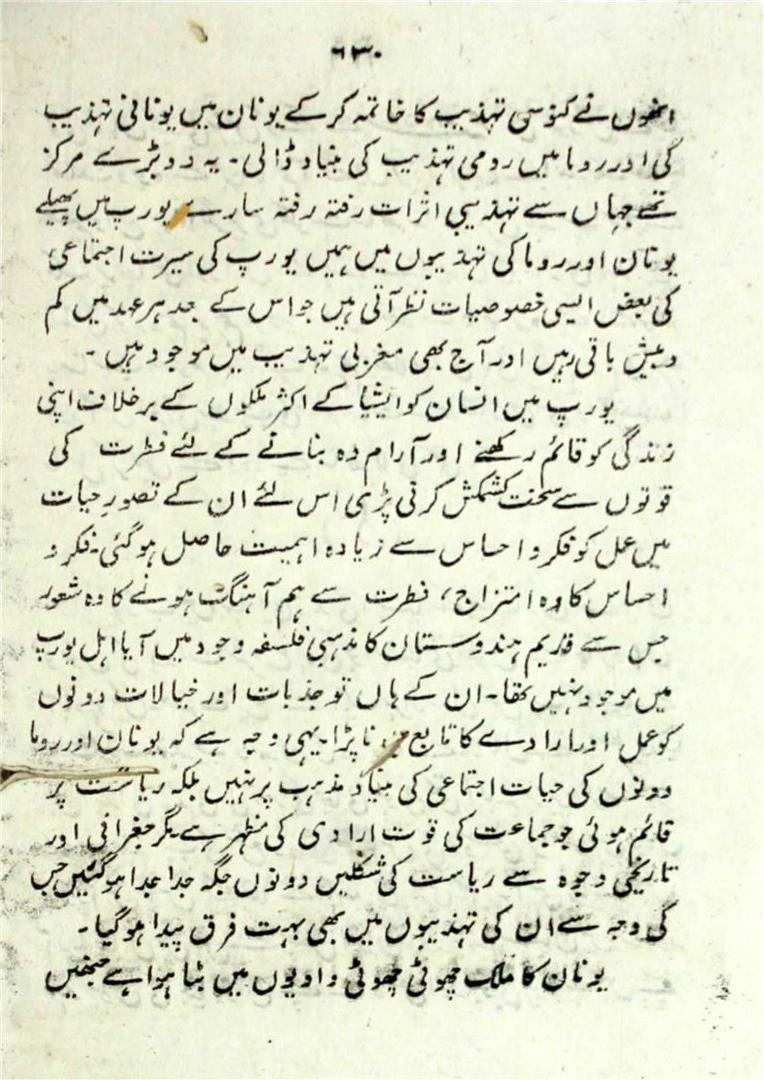 ۶۳۰
انھوں نے کنوسی تہذیب کا خاتمہ کرکے یونان میں یونانی تہذیب
کی اور روما میں رومی تہذیب کی بنیاد ڈالی۔ یہ دو بڑے مرکز
تھے جہاں سے تہذیبی اثرات رفتہ رفتہ سارے یورپ میں پھیلے
یونان اور روما کی تہذیبوں میں ہمیں یورپ کی سیرت اجتماعی
کی بعض ایسی خصوصیات نظر آتی ہیں جو اس کے بعد ہر عہد میں کم
و بیش باقی رہیں اور آج بھی مغربی تہذیب میں موجود ہیں ۔
یورپ میں انسان کو ایشیا کے اکثر ملکوں کے برخلاف اپنی
زندگی کو قائم رکھنے اور آرام دہ بنانے کے لئے فطرت کی
قوتوں سے سخت کشمکش کرنی پڑی اس لئے ان کے تصورِ حیات
میں عمل کو فکر و احساس سے زیادہ اہمیت حاصل ہو گئی۔ فکر و
احساس کا وہ امتزاج، فطرت سے ہم آہنگ ہونے کا وہ شعور
جس سے قدیم ہندوستان کا مذہبی فلسفہ وجود میں آیا اہل یورپ
میں موجود نہیں تھا۔ ان کے ہاں تو جذبات اور خیالات دونوں
کو عمل اور ارادے کا تابع بننا پڑا۔ یہی وجہ ہے کہ یونان اور روما
دونوں کی حیات اجتماعی کی بنیاد مذہب پر نہیں بلکہ ریاست پر
قائم ہوئی جو جماعت کی قوت ارادی کی مظہر ہے۔ مگر جغرافی اور
تاریخی وجوہ سے ریاست کی شکلیں دونوں جگہ جدا جدا ہو گئیں جس
کی وجہ سے ان کی تہذیبوں میں بھی بہت فرق پیدا ہو گیا۔
یونان کا ملک چھوٹی چھوٹی وادیوں میں بٹا ہوا ہے جنھیں